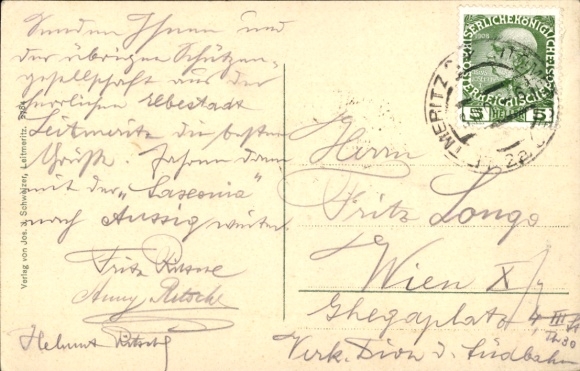 Senden Ihnen und
der übrigen Schützen-
gesellschaft aus der
herrlichen Elbestadt
Leitmeritz die besten
Grüße. Fahren dann
mit der „Saxonia"
nach Aussig weiter.
Fritz
Anny Ritsche
Helmut
Verlag von Jos. J. Schweizer, Leitmeritz.
KAISERLICHE KÖNIGLICHE
ÖSTERREICHISCHE
1908
5 HELLER 5
TMERITZ
22
Herrn
Fritz Longo
Wien X/
Ghegaplatz 4
Verk. Dion d. Südbahn